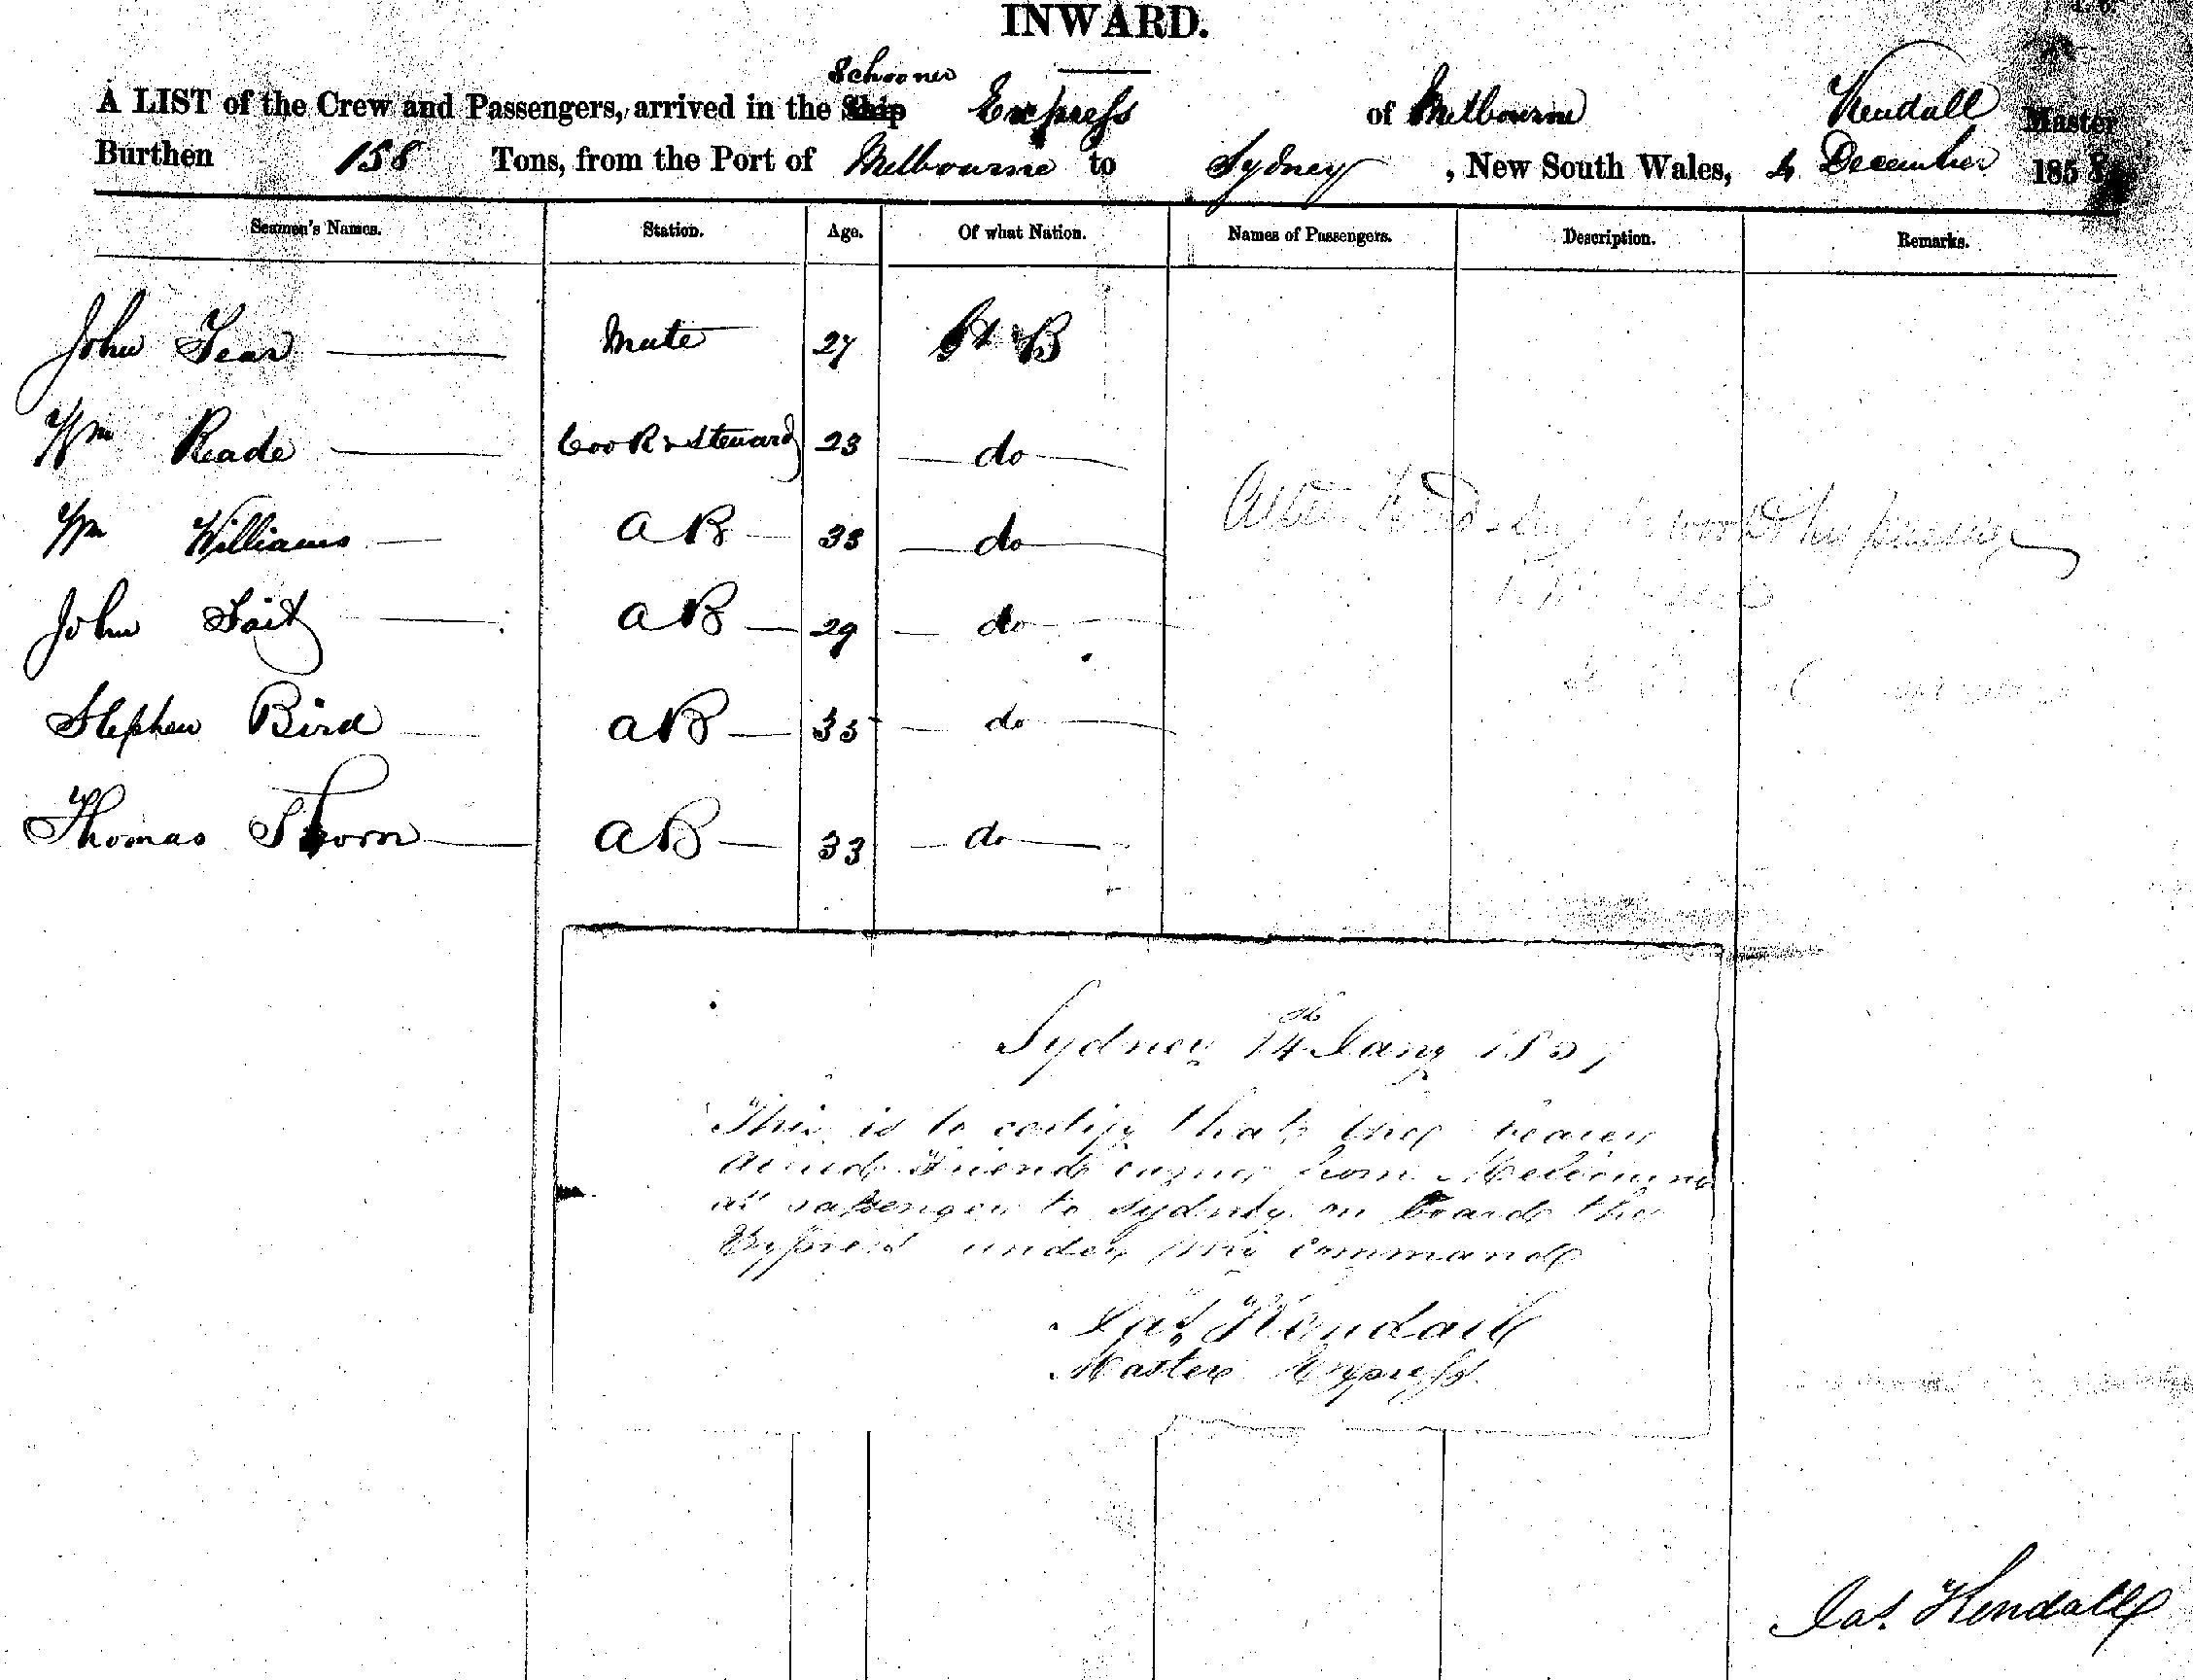 INWARD.
Schooner
A LIST of the Crew and Passengers, arrived in the Ship Express of Melbourne Kendall Master
Burthen 158 Tons, from the Port of Melbourne to Sydney, New South Wales, 4 December 1858
Seamen's Names. Station. Age. Of what Nation. Names of Passengers. Description. Remarks.
John Tear Mate 27 Gt B
Wm Reade Cook & Steward 23 do
Wm Williams AB 33 do
John Tait AB 29 do
Stephen Bird AB 35 do
his passage
Thomas Thorn AB 33 do
Sydney 14th Jany 185
This is to certify that the bearer
Friend came from Melbourne
as passenger to Sydney on board the
Express under my command
Jas. Kendall
Master Express
Jas. Kendall